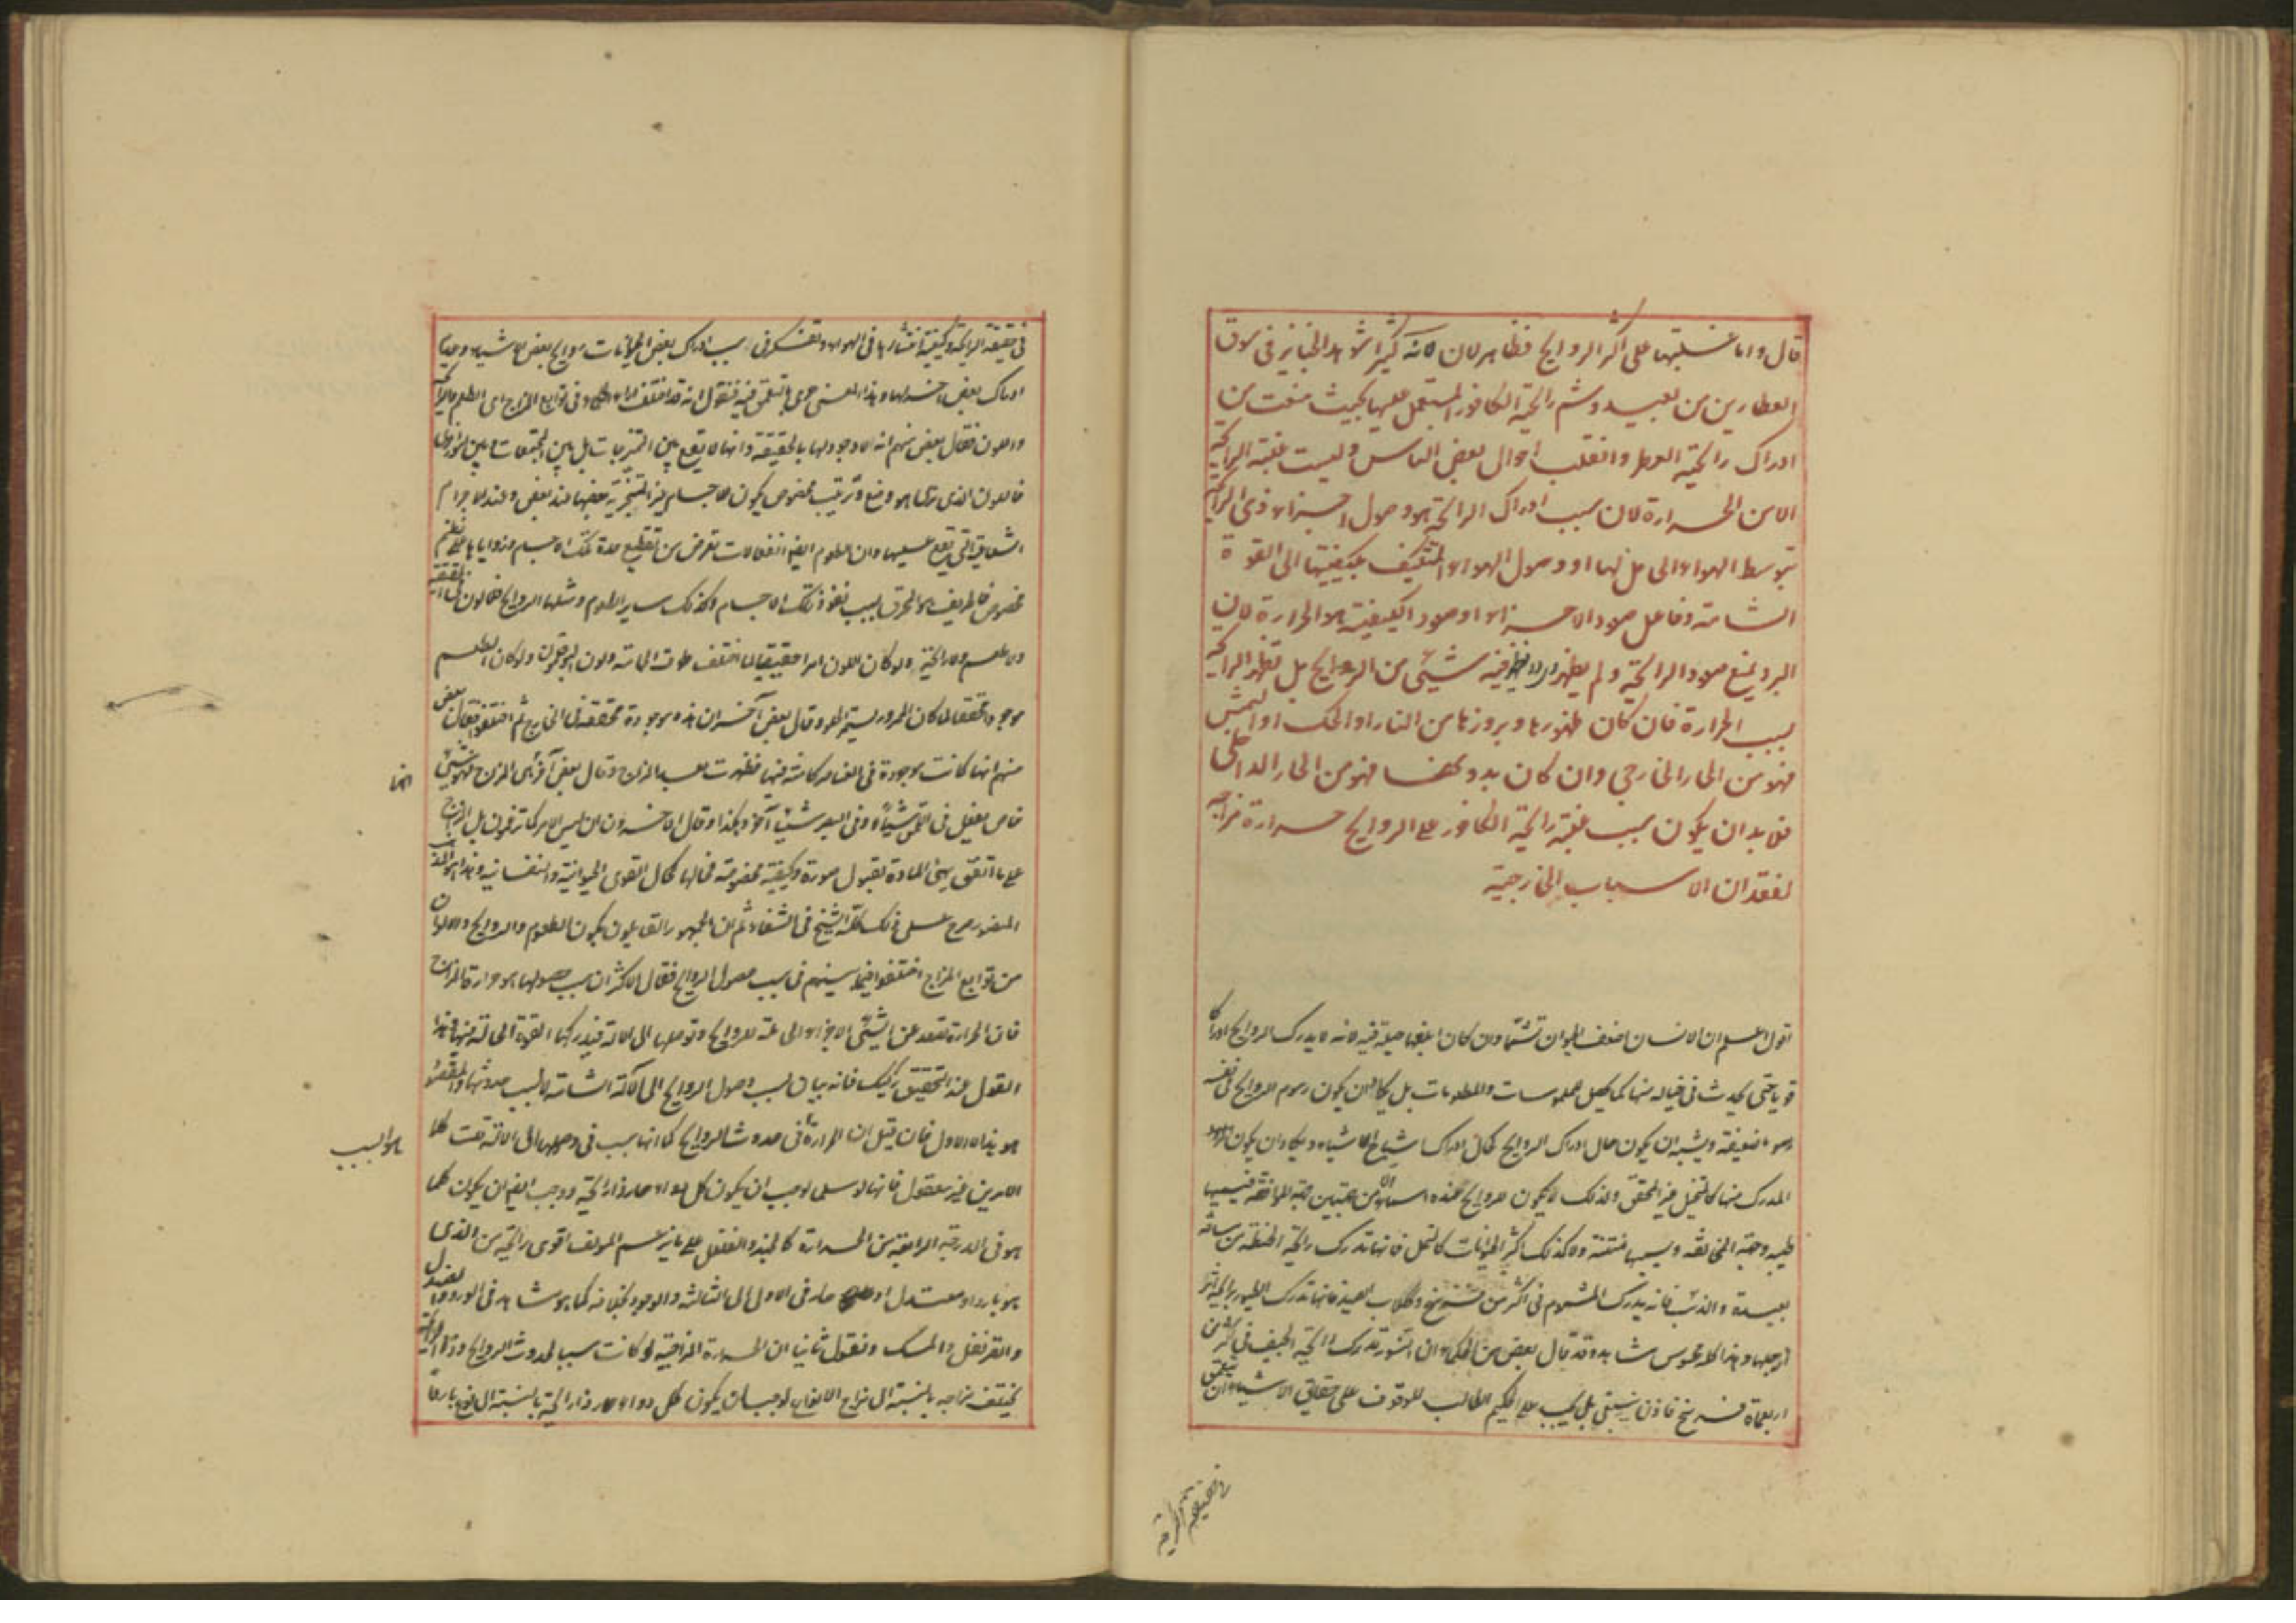 قال و اما غلبتها على اكثر الروايح فظاهر لان لانه كثيرا شاهد الخبايز في سوق
العطارين من بعيد و شم رائحة الكافور المستعمل عليها بحيث منعت من
ادراك رائحة العطر و انقلب احوال بعض الناس و ليست غلبة الرائحة
الا من الحرارة لان سبب ادراك الرائحة هو وصول اجزاء ذى الرائحة
بتوسط الهواء الى محل لها او وصول الهواء المتكيف بكيفيتها الى القوة
الشامة و فاعل صعود الاجزاء او صعود الكيفية هو الحرارة لان
البرد يمنع صعود الرائحة و لم يظهر فيه شيئ من الروايح بل تظهر الرائحة
بسبب الحرارة فان كان ظهورها و بروزها من النار او الحك او الشمس
فهو من الحار الخارجى و ان كان بدونها فهو من الحار الداخلى
فلا بد ان يكون سبب غلبة رائحة الكافور على الروايح حرارة مزاجه
لفقدان الاسباب الخارجية
اقول اعلم ان الانسان اضعف الحيوان تشمما و ان كان ابلغها حيلة فيه لانه لا يدرك الروايح ادراكا
قويا حتى يحدث في خياله منها كما يحصل للملموسات و المطعومات بل يكاد ان يكون رسوم الروايح في نفسه
رسوما ضعيفة و يشبه ان يكون حال ادراك الروايح كحال ادراك اشباح الاشياء و يكاد ان يكون
المدرك منها كالمتخيل غير المحقق و لذلك لا يكون للروايح عنده اسماء الا من جهتين جهة الموافقة فيسميها
طيبة و جهة المخالفة و يسميها منتنة و لا كذلك اكثر الحيوانات كالنمل فانها تدرك رائحة الحنطة من مسافة
بعيدة و الذئب فانه يدرك المشموم في اكثر من فرسخ و كلاب الصيد فانها تدرك الطيور برائحة اثر
ارجلها و هذا كله محسوس مشاهد و قد قال بعض من الحكماء ان النسور تدرك رائحة الجيف في اكثر من
اربعماة فرسخ فاذن ينبغى بل يجب على الحكيم الطالب للوقوف على حقائق الاشياء ان يتعمق
في حقيقة الرائحة
في حقيقة الرائحة و كيفية انتشارها في الهواء و تفكر في سبب ادراك بعض الحيوانات روايح بعض الاشياء دون
ادراك بعض اخر لها و هذا المعنى حرى بالتعمق فيه فنقول انه قد اختلف اراء الحكماء في توابع المزاج اى الطعم و الرائحة
و اللون فقال بعض منهم انه لا وجود لها بالحقيقة و انها لا يقع بين الممتزجات بل بين المجتمعات و بين
فاللون الذى نراها هو وضع و ترتيب مخصوص يكون للاجسام الغير المتجزية بعضها عند بعض و عند الاجرام
الشعاعية التى يقع عليها و ان الطعوم ايضا انفعالات تعرض من تقطيع حدة تلك الاجسام و زواياها على نظم
مخصوص فالحريف هو المحرق بسبب نفوذ تلك الاجسام و كذلك ساير الطعوم و مثلها الروايح فلا لون في الحقيقة
و لا طعم و لا رائحة و لو كان اللون امرا حقيقيا لما اختلف طوق الحمامة و لون ابو قلمون و لو كان الطعم
موجودا محققا لما كان المرور يستمر المرو قال بعض آخر ان هذه موجودة محققة في الخارج ثم اختلفوا فقال بعض
منهم انها كانت موجودة في العناصر كامنة فيها فظهرت بعد المزج و قال بعض آخر انما هى المزج فهو شيئ
خاص يفعل في اللمس شيئا و في البصر شيئا آخر و هكذا و قال الاخرون ان ليس الامر كما تزعمون بل المزج
على ما اتفق يهيئ المادة لقبول صورة و كيفية مخصوصة فحالها كحال القوى الحيوانية و النفسانية و هذا هو المذهب
المنصور صرح على ذلك كله الشيخ في الشفاء ثم ان الجمهور القايلون بكون الطعوم و الروايح و الالوان
من توابع المزاج اختلفوا فيما بينهم في سبب حصول الروايح فقال الاكثر ان سبب حصولها هو حرارة المزاج
فان الحرارة تصعد عن الشيئ الاجزاء الحاملة للروايح و توصلها الى الالة فيدركها القوة الحالة فيها و هذا
القول عند التحقيق ركيك فانه بيان لسبب وصول الروايح الى الآلة الشامة لا لسبب حدوثها و المقصود
هو هذا لا الاول فان قيل ان الحرارة هو السبب في حدوث الروايح كما انها سبب في وصولها الى الالة قلت كلا
الامرين غير معقول فانها لو سلم لوجب ان يكون كل دواء حار ذا رائحة و وجب ايضا ان يكون كلما
هو في الدرجة الرابعة من الحرارة كالجند و الفلفل على ما يزعم المؤلف اقوى رائحة من الذى
هو بارد او معتدل او حار في الاولى الى الثالثة و الوجود بخلافه كما هو مشاهد في الورد و الصندل
و القرنفل و المسك و نقول ثانيا ان الحرارة المزاجية لو كانت سببا لحدوث الروايح و ذو الرائحة
يختلف مزاجه بالنسبة الى مزاج الانواع لوجب ان يكون كل دواء حار ذا رائحة بالنسبة الى نوع باردا
انها
هو السبب